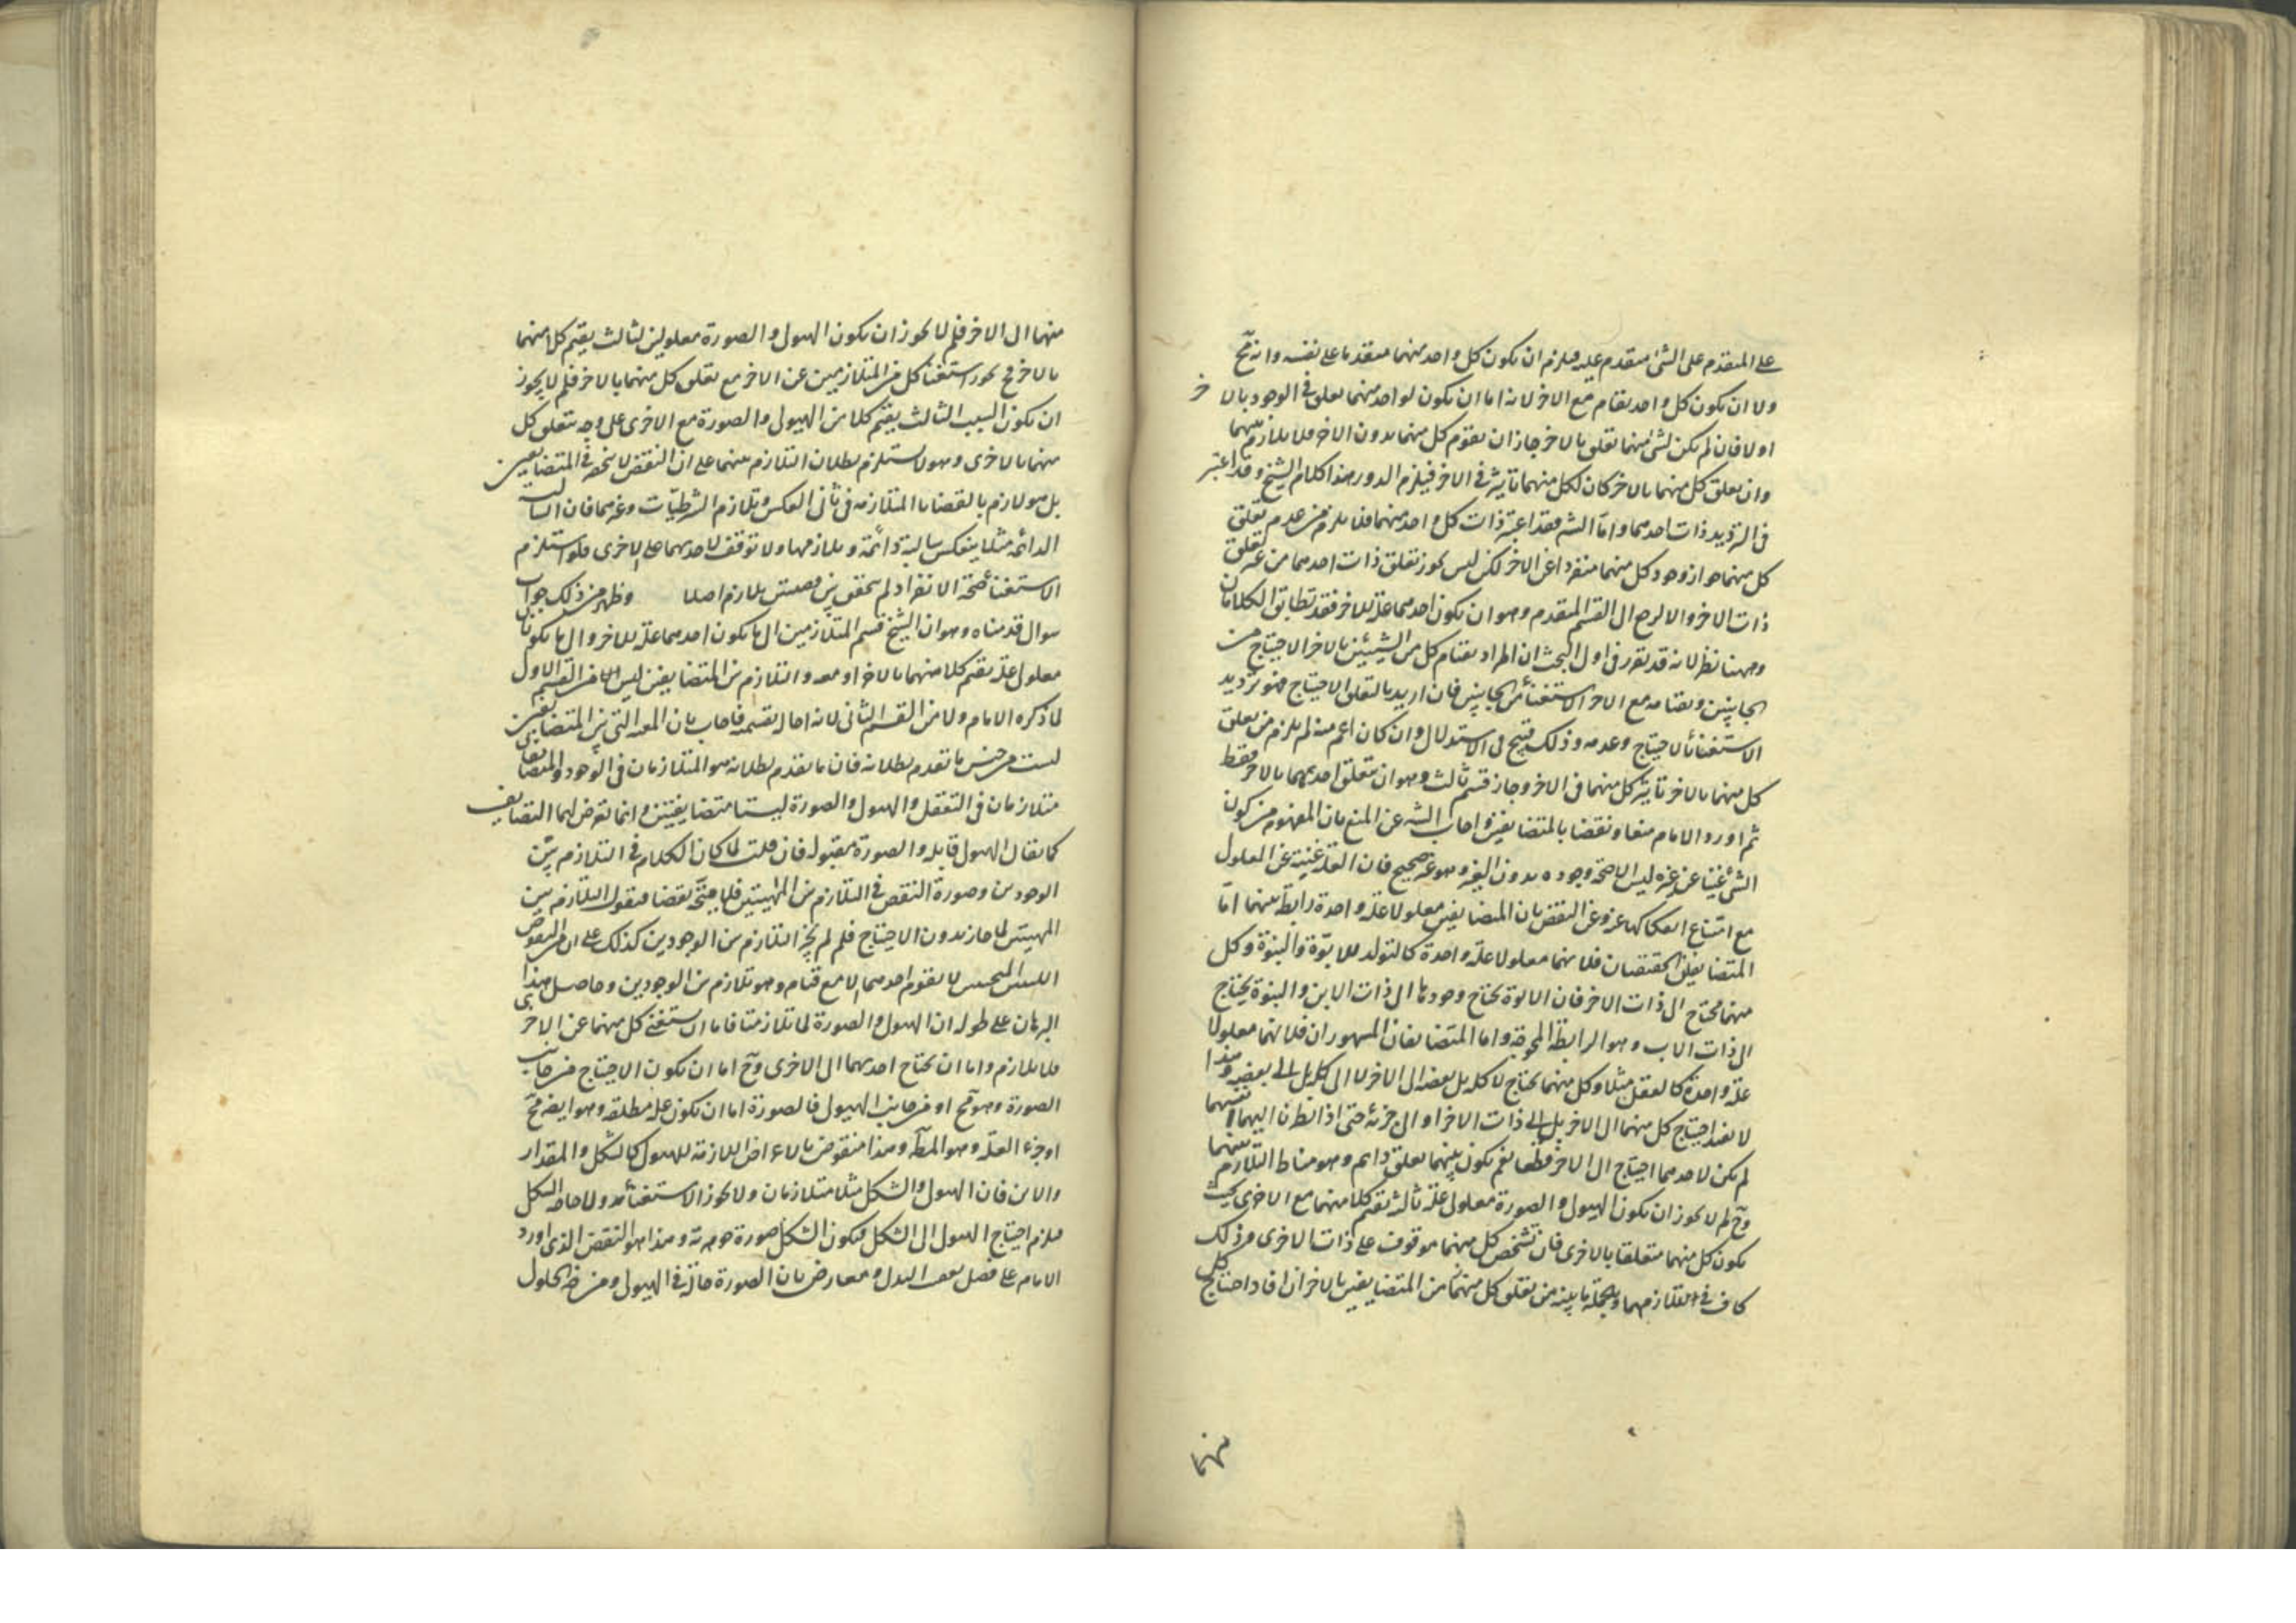 على المتقدم على الشئ متقدم عليه فيلزم ان يكون كل واحد منهما متقدما على نفسه وانه مح
ولا ان يكون كل واحد يقام مع الاخر لانه اما ان يكون لواحد منهما تعلق فى الوجود بالاخر
اولا فان لم يكن لشئ منهما تعلق بالاخر جاز ان يقوم كل منهما بدون الاخر فلا تلازم بينهما
وان تعلق كل منهما بالاخر كان لكل منهما تاثير فى الاخر فيلزم الدور هذا كلام الشيخ وقد اعتبر
فى الترديد ذات احدهما واما الشه فقد اعتبر ذات كل واحد منهما فلا يلزم من عدم تعلق
كل منهما جواز وجود كل منهما منفردا عن الاخر لكن ليس يجوز تعلق ذات احدهما من غير تعلق
ذات الاخر والا لرجع الى القسم المتقدم وهو ان يكون احدهما علة للاخر فقد تطابق الكلامان
وههنا نظر لانه قد تقرر فى اول البحث ان المراد بقيام كل من الشيئين بالاخر الاحتياج من
الجانبين وبقيامه مع الاخر الاستغناء من الجانبين فان اريد بالتعلق الاحتياج فهو ترديد
الاستغناء بالاحتياج وعدمه وذلك قبيح فى الاستدلال وان كان اعم منه لم يلزم من تعلق
كل منهما بالاخر تاثير كل منهما فى الاخر وجاز قسم ثالث وهو ان يتعلق احدهما بالاخر فقط
ثم اورد الامام منعا ونقضا بالمتضايفين واجاب الشه عن المنع بان المفهوم من كون
الشئ غنيا عن غيره ليس الا صحة وجوده بدون الغير وهو غير صحيح فان العلة غنية عن المعلول
مع امتناع انفكاكها عنه وعن النقض بان المتضايفين معلولا علة واحدة رابطة بينهما اما
المتضايفان الحقيقيان فلانهما معلولا علة واحدة كالتولد للابوة والبنوة وكل
منهما محتاج الى ذات الاخر فان الابوة يحتاج وجودها الى ذات الابن والبنوة يحتاج
الى ذات الاب وهو الرابطة المحوجة واما المتضايفان المشهوران فلانهما معلولا
علة واحدة كالعقل مثلا وكل منهما يحتاج لا كله بل بعضه الى الاخر لا الى كله بل الى بعضه وهذا
لا يفيد احتياج كل منهما الى الاخر بل الى ذات الاخر او الى جزئه حتى اذا نظرنا اليهما انفسهما
لم يكن لاحدهما احتياج الى الاخر قطعا نعم يكون بينهما تعلق دايم وهو مناط التلازم بينهما
وح لم لا يجوز ان يكون الهيولى والصورة معلولى علة ثالثة تقيم كلا منهما مع الاخرى بحيث
يكون كل منهما متعلقا بالاخرى فان تشخص كل منهما موقوف على ذات الاخرى وذلك
كاف فى التلازمهما وبالجملة ما بينه من تعلق كل منهما من المتضايفين بالاخر ان افاد احتياج كل
منهما
منهما الى الاخر فلم لا يجوز ان يكون الهيولى والصورة معلولين لثالث يقيم كلا منهما
بالاخر فح يجوز استغناء كل من المتلازمين عن الاخر مع تعلق كل منهما بالاخر فلم لا يجوز
ان يكون السبب الثالث يقيم كلا من الهيولى والصورة مع الاخرى على وجه يتعلق كل
منهما بالاخرى وهو لا يستلزم بطلان التلازم بينهما على ان النقض لا ينحصر فى المتضايفين
بل هو لازم بالقضايا المتلازمة فى ثانى العكس وتلازم الشرطيات وغيرهما فان السالبة
الدائمة مثلا ينعكس سالبة دائمة ويلازمها ولا توقف لاحديهما على الاخرى فلو استلزم
الاستغناء صحة الانفراد لم يتحقق بين قضيتين تلازم اصلا وظهر من ذلك جواب
سوال قدمناه وهو ان الشيخ قسم المتلازمين الى ما يكون احدهما علة للاخر والى ما يكونان
معلولى علة يقيم كلا منهما بالاخر او معه والتلازم بين المتضايفين ليس الا من القسم الاول
لما ذكره الامام ولا من القسم الثانى لانه احال بقسميه فاجاب بان المعية التى بين المتضايفين
ليست من جنس ما تقدم بطلانه فان ما تقدم بطلانه هو المتلازمان فى الوجود والمتضايفان
متلازمان فى التعقل والهيولى والصورة ليستا متضايفيتين وانما تعرض لهما التضايف
كما يقال الهيولى قابلة والصورة مقبولة فان قلت لما كان الكلام فى التلازم بين
الوجودين وصورة النقض فى التلازم بين المهيتين فلا يتجه نقضا فنقول التلازم بين
المهيتين لما جاز بدون الاحتياج فلم لم يجز التلازم بين الوجودين كذلك على ان من النقوض
اللبنتين المنحنيتين لا يقوم احدهما الا مع قيام وهو تلازم بين الوجودين وحاصل هذا
البرهان على طوله ان الهيولى والصورة لما تلازمتا فاما ان يستغنى كل منهما عن الاخرى
فلا تلازم واما ان يحتاج احديهما الى الاخرى وح اما ان يكون الاحتياج من جانب
الصورة وهو مح او من جانب الهيولى فالصورة اما ان يكون علة مطلقة وهو ايضا مح
اوجزء العلة وهو المط وهذا منقوض بالاعراض اللازمة للهيولى كالشكل والمقدار
والاين فان الهيولى والشكل مثلا متلازمان ولا يجوز الاستغناء ولا حاجة الشكل
فلزم احتياج الهيولى الى الشكل فيكون الشكل صورة جوهرية وهذا هو النقض الذى اورد
الامام على فصل بعد البدل ومعارض بان الصورة حالة فى الهيولى ومن ضرورة الحلول